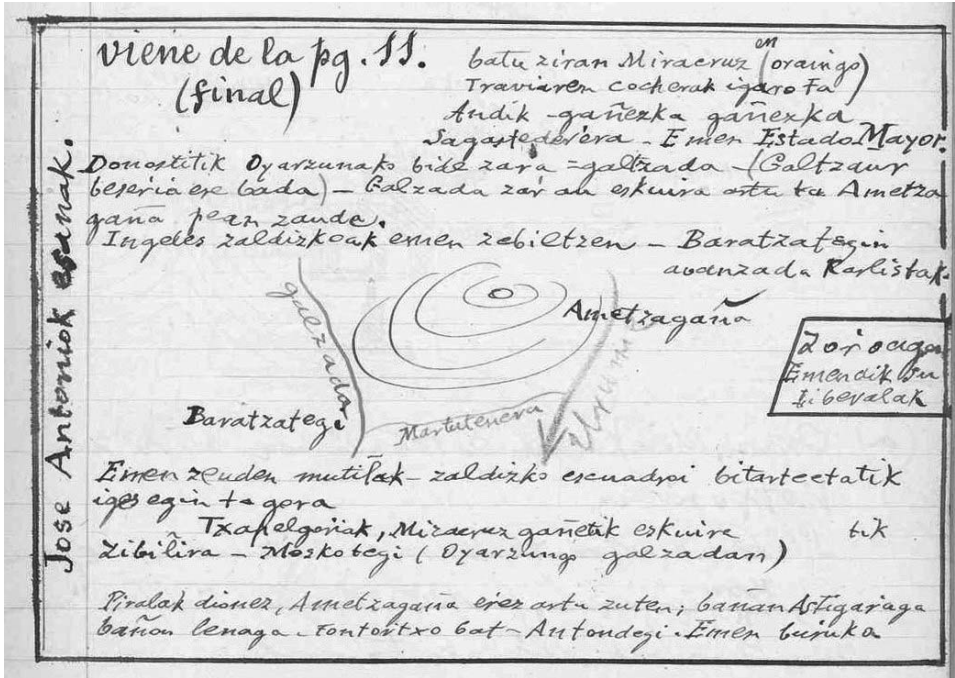 viene de la pg. 11.
(final)
batu ziran Miracruz en (oraingo)
Traviaren cocherak igaro ta
Andik gañezka gañezka
Sagastederera - Emen Estado Mayor.
Donostitik Oyarzunako bide zara = galtzada - (Galtzaur
beseria ere bada) - Galzada zarran eskuira artu ta Ametza
gaña pean zaude.
Ingeles zaldizkoak emen zebiltzen - Baratzategin
avanzada Karlistak.
galzada
Ametzagaña
Zoroaga
Emendik su
liberalak
Baratzategi
Martutenera
Jose Antoniok esanak.
Emen zeuden mutillak - zaldizko escuadroi bitarteetatik
iges egin ta gora
Txapelgoriak, Miracruz gañetik eskuire tik
Zibilira - Mozkotegi (Oyarzungo galzadan)
Piralak dionez, Ametzagaña erez artu zuten; bañan Astigaraga
bañon lenago. Tontortxo bat - Antondegi. Emen buruka